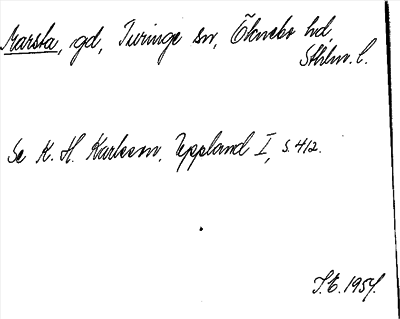 Marsta, gd, Turinge sn, Öknebo hd,
Sthlm. l.
Se K. H. Karlsson, Uppland I, s. 412.
I.E. 1954.